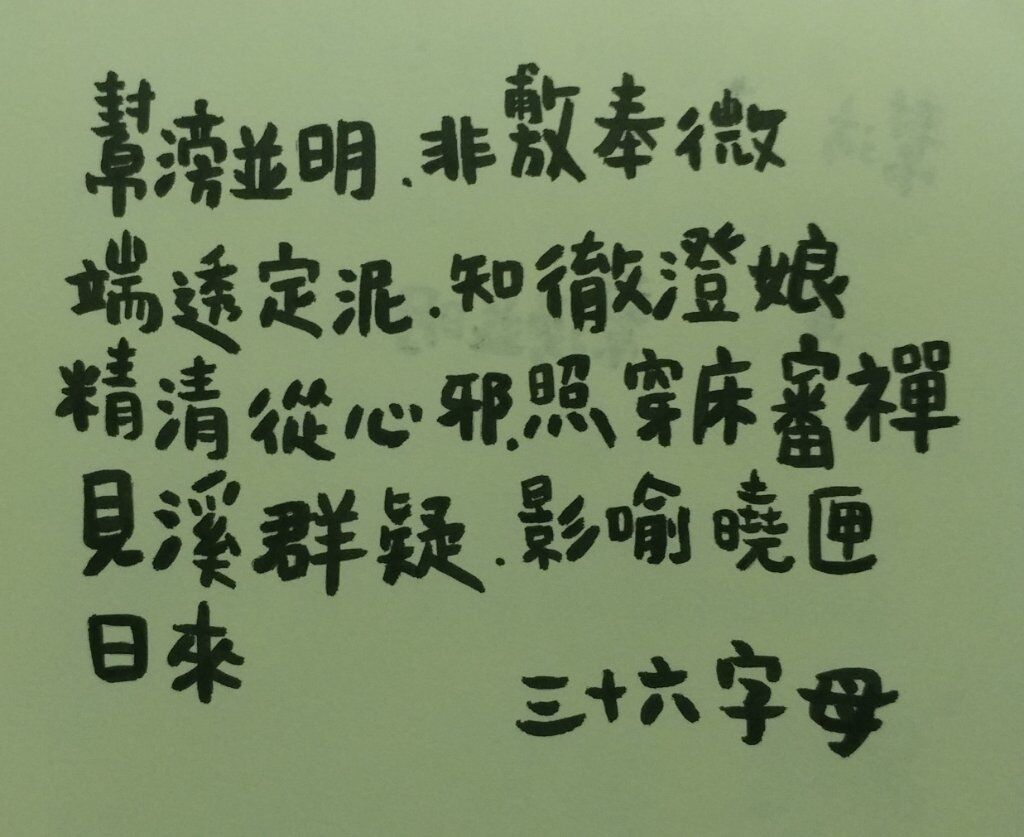 幫滂並明.非敷奉微
端透定泥.知徹澄娘
精清從心邪.照穿床審禪
見溪群疑.影喻曉匣
日來
三十六字母